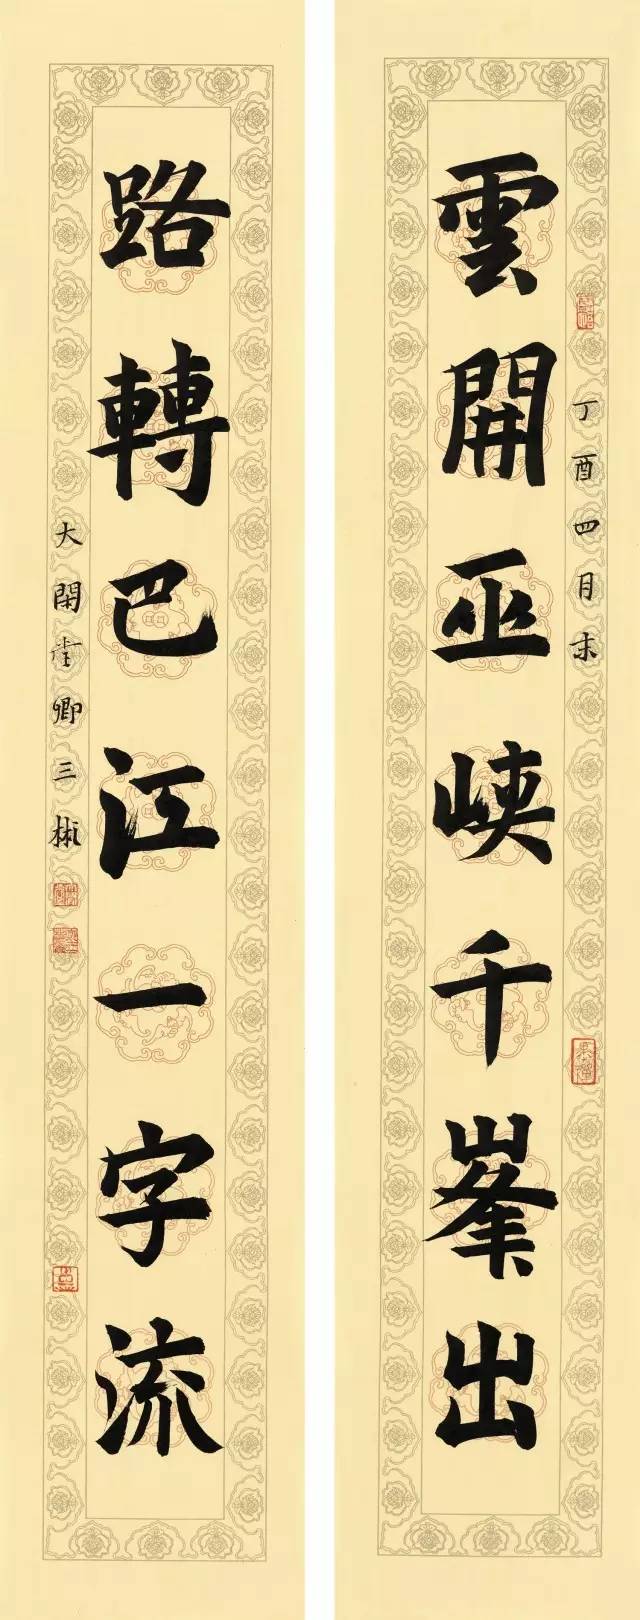 雲開巫峽千峯出
丁酉四月末
路轉巴江一字流
大閑堂卿三彬